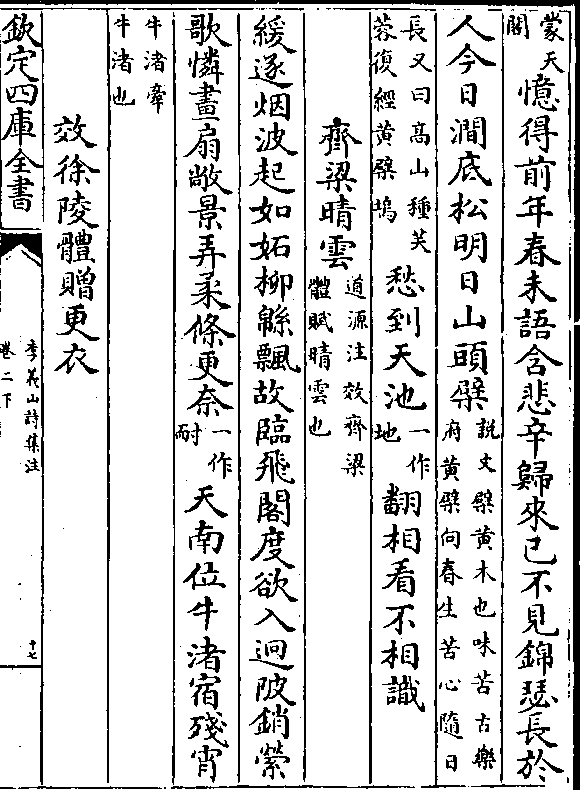 蒙天
閣
憶得前年春未語含悲辛歸來已不見錦瑟長於
人今日澗底松明日山頭檗
說文檗黃木也味苦古樂
府黃檗向春生苦心隨日
長又曰高山種芙
蓉復經黃檗塢
愁到天池
一作
地
翻相看不相識
齊梁晴雲
道源注效齊梁
體賦晴雲也
緩逐烟波起如妬柳緜飄故臨飛閣度欲入迥陂銷縈
歌憐畫扇敞景弄柔條更奈
一作
耐
天南位牛渚宿殘宵
牛渚牽
牛渚也
效徐陵體贈更衣
欽定四庫全書
李義山詩集注
卷二下
十七